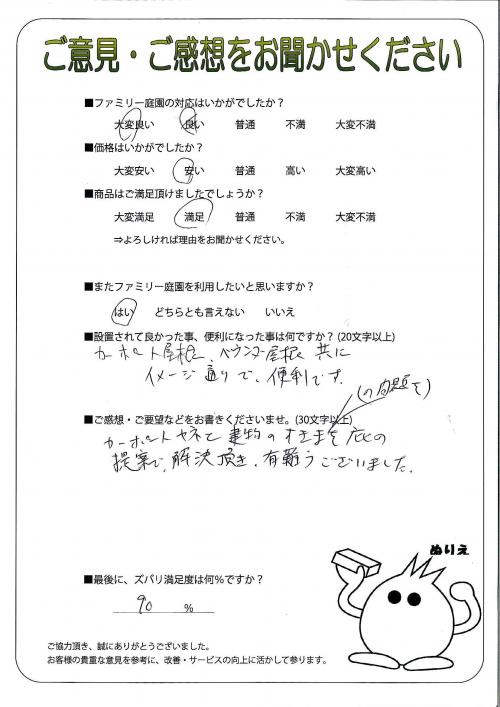 ご意見・ご感想をお聞かせください
■ファミリー庭園の対応はいかがでしたか？
大変良い 良い 普通 不満 大変不満
■価格はいかがでしたか？
大変安い 安い 普通 高い 大変高い
■商品はご満足頂けましたでしょうか？
大変満足 満足 普通 不満 大変不満
⇒よろしければ理由をお聞かせください。
■またファミリー庭園を利用したいと思いますか？
はい どちらとも言えない いいえ
■設置されて良かった事、便利になった事は何ですか？(20文字以上)
カーポート屋根、ベランダ屋根 共に
イメージ通りで、便利です.
■ご感想・ご要望などをお書きくださいませ。(30文字以上)
(の問題を)
カーポートヤネと建物のすきまを庇の
提案で、解決頂き、有難うございました.
■最後に、ズバリ満足度は何％ですか？
90 %
ぬりえ
ご協力頂き、誠にありがとうございました。
お客様の貴重な意見を参考に、改善・サービスの向上に活かして参ります。